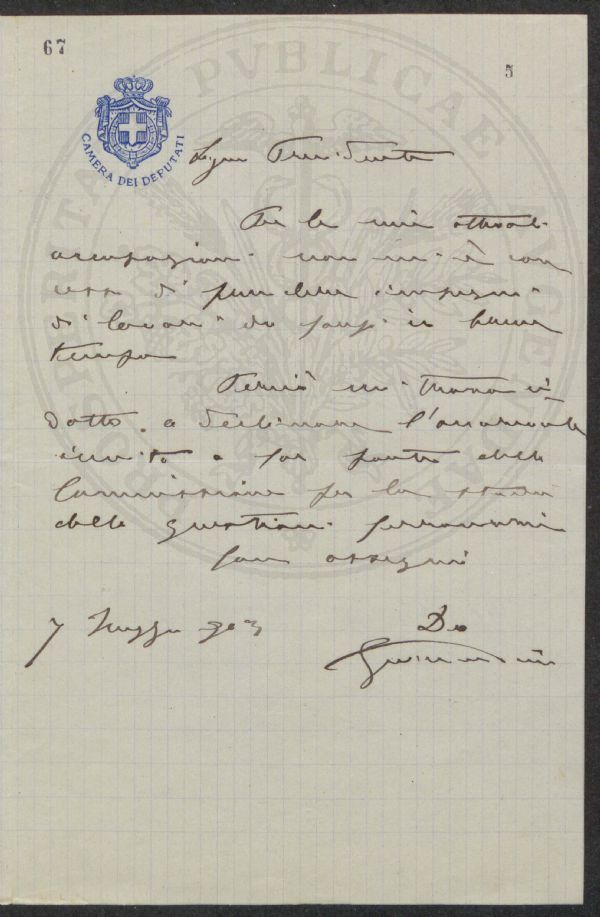 67
5
CAMERA DEI DEPUTATI
PROSPERITATI PVBLICAE AVGENDAE
Per le mie attuali
occupazioni non mi è con
cesso di prendere impegni
di lavori da farsi in breve
tempo
Perciò mi trovo in
dotto a declinare l'onorevole
invito a far parte della
Commissione per lo studio
delle questioni
con ossequi
7 Maggio 903